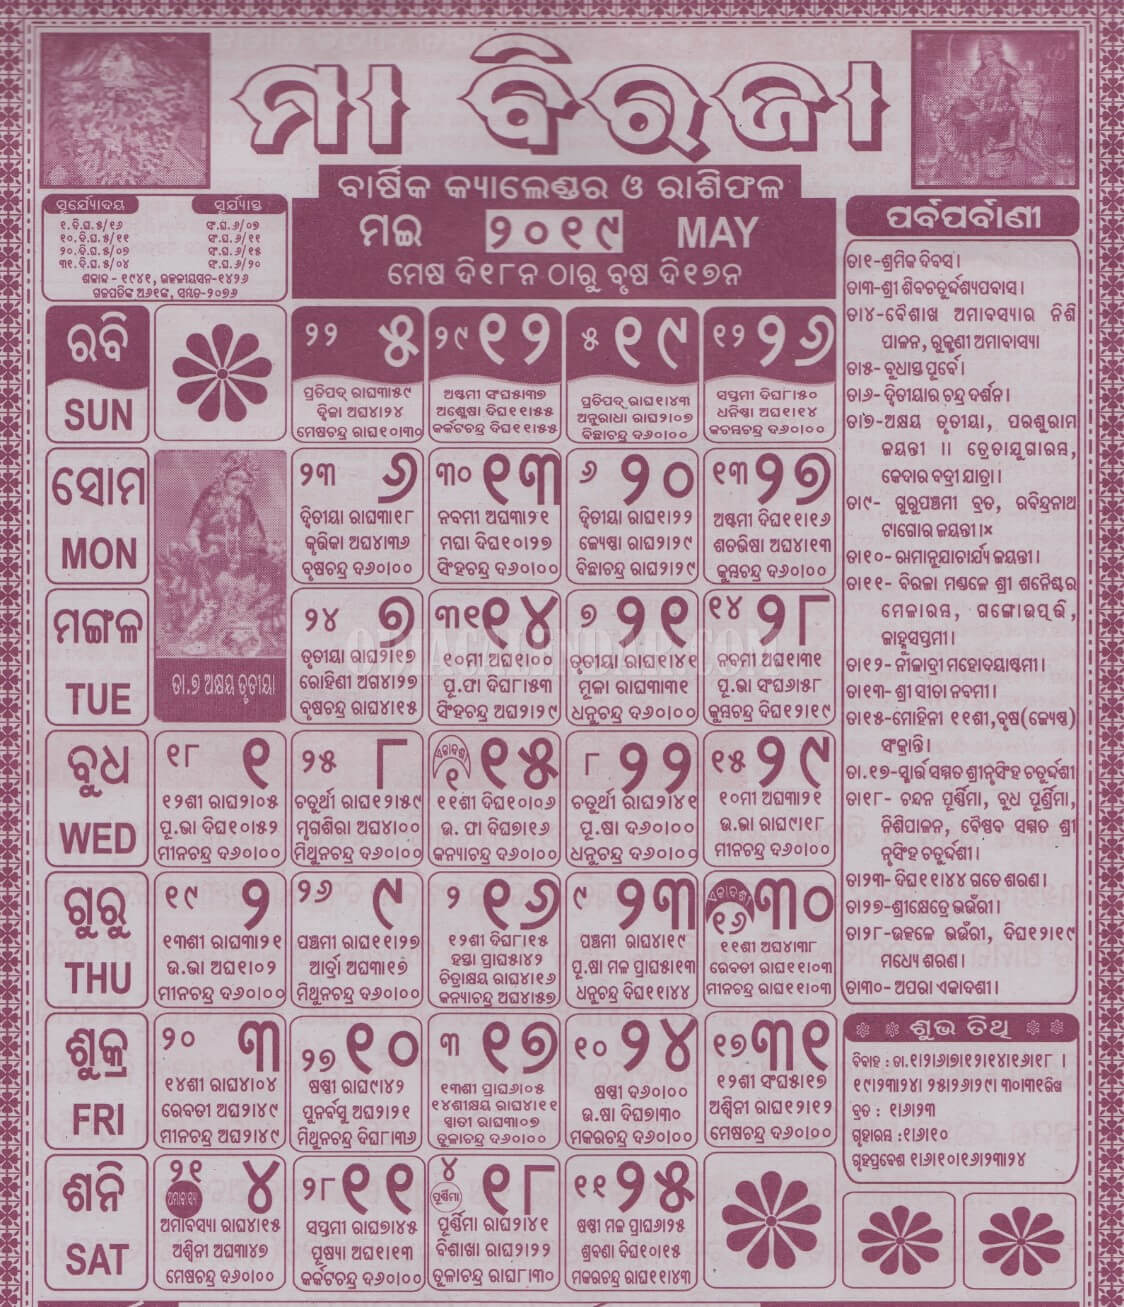 ମା ବିରଜା
ବାର୍ଷିକ କ୍ୟାଲେଣ୍ଡର ଓ ରାଶିଫଳ
ସୂର୍ଯ୍ୟୋଦୟ ସୂର୍ଯ୍ୟାସ୍ତ
୧.ବି.ଘ.୫/୧୬ ସଂ.ଘ.୬/୦୭
୧୦.ବି.ଘ.୫/୧୧ ସଂ.ଘ.୬/୧୧
୨୦.ବି.ଘ.୫/୦୭ ସଂ.ଘ.୬/୧୫
୩୧.ବି.ଘ.୫/୦୪ ସଂ.ଘ.୬/୨୦
ଶକାବ୍ଦ - ୧୯୪୧, ଉତ୍କଳୀୟସନ-୧୪୨୬
ଗଜପତିଙ୍କ ଅ୬୧ଙ୍କ, ସମ୍ବତ-୨୦୭୬
ମଇ ୨୦୧୯ MAY
ମେଷ ଦି୧୮ନ ଠାରୁ ବୃଷ ଦି୧୭ନ
ରବି
SUN
୨୨ ୫
ପ୍ରତିପଦ୍ ରାଘ୩।୫୯
ଦ୍ୱିକା ଅଘ୪।୨୪
ମେଷଚନ୍ଦ୍ର ରାଘ୧୦।୩୦
୨୯ ୧୨
ଅଷ୍ଟମୀ ସଂଘ୫।୩୭
ଅଶ୍ଳେଷା ଦିଘ୧୧।୫୫
କର୍କଟଚନ୍ଦ୍ର ଦିଘ୧୧।୫୫
୫ ୧୯
ପ୍ରତିପଦ୍ ରାଘ୧।୪୩
ଅନୁରାଧା ରାଘ୨।୦୭
ବିଛାଚନ୍ଦ୍ର ଦ୬୦।୦୦
୧୨ ୨୬
ସପ୍ତମୀ ଦିଘ୮।୫୦
ଧନିଷ୍ଠା ଅଘ୧।୧୪
କୁମ୍ଭଚନ୍ଦ୍ର ଦ୬୦।୦୦
ସୋମ
MON
୨୩ ୬
ଦ୍ୱିତୀୟା ରାଘ୩।୧୮
କୃତ୍ତିକା ଅଘ୪।୩୬
ବୃଷଚନ୍ଦ୍ର ଦ୬୦।୦୦
୩୦ ୧୩
ନବମୀ ଅଘ୩।୨୧
ମଘା ଦିଘ୧୦।୨୭
ସିଂହଚନ୍ଦ୍ର ଦ୬୦।୦୦
୬ ୨୦
ଦ୍ୱିତୀୟା ରାଘ୧।୨୨
ଜ୍ୟେଷ୍ଠା ରାଘ୨।୨୯
ବିଛାଚନ୍ଦ୍ର ରାଘ୨।୨୯
୧୩ ୨୭
ଅଷ୍ଟମୀ ଦିଘ୧୧।୧୬
ଶତଭିଷା ଅଘ୪।୧୩
କୁମ୍ଭଚନ୍ଦ୍ର ଦ୬୦।୦୦
ମଙ୍ଗଳ
TUE
ତା.୭ ଅକ୍ଷୟ ତୃତୀୟା
୨୪ ୭
ତୃତୀୟା ରାଘ୨।୧୭
ରୋହିଣୀ ଅଗ୪।୨୭
ବୃଷଚନ୍ଦ୍ର ରାଘ୪।୧୫
୩୧ ୧୪
୧୦ମୀ ଅଘ୧।୦୦
ପୂ.ଫା ଦିଘ୮।୫୩
ସିଂହଚନ୍ଦ୍ର ଅଘ୨।୨୯
୭ ୨୧
ତୃତୀୟା ରାଘ୧।୪୧
ମୂଳା ରାଘ୩।୩୧
ଧନୁଚନ୍ଦ୍ର ଦ୬୦।୦୦
୧୪ ୨୮
ନବମୀ ଅଘ୧।୩୧
ପୂ.ଭା ସଂଘ୬।୫୮
କୁମ୍ଭଚନ୍ଦ୍ର ଦିଘ୧୨।୧୯
ODIACALENDAR.COM
ବୁଧ
WED
୧୮ ୧
୧୨ଶୀ ରାଘ୨।୦୫
ପୂ.ଭା ଦିଘ୧୦।୫୨
ମୀନଚନ୍ଦ୍ର ଦ୬୦।୦୦
୨୫ ୮
ଚତୁର୍ଥୀ ରାଘ୧୨।୫୯
ମୃଗଶିରା ଅଘ୪।୦୦
ମିଥୁନଚନ୍ଦ୍ର ଦ୬୦।୦୦
ଏକାଦଶୀ ୧ ୧୫
୧୧ଶୀ ଦିଘ୧୦।୦୬
ଉ. ଫା ଦିଘ୭।୧୬
କନ୍ୟାଚନ୍ଦ୍ର ଦ୬୦।୦୦
୮ ୨୨
ଚତୁର୍ଥୀ ରାଘ୨।୪୧
ପୂ.ଷା ଦ୬୦।୦୦
ଧନୁଚନ୍ଦ୍ର ଦ୬୦।୦୦
୧୫ ୨୯
୧୦ମୀ ଅଘ୩।୨୧
ଉ.ଭା ରାଘ୯।୧୮
ମୀନଚନ୍ଦ୍ର ଦ୬୦।୦୦
ଗୁରୁ
THU
୧୯ ୨
୧୩ଶୀ ରାଘ୩।୨୧
ଉ.ଭା ଅଘ୧।୦୨
ମୀନଚନ୍ଦ୍ର ଦ୬୦।୦୦
୨୬ ୯
ପଞ୍ଚମୀ ରାଘ୧୧।୨୭
ଆର୍ଦ୍ରା ଅଘ୩।୧୭
ମିଥୁନଚନ୍ଦ୍ର ଦ୬୦।୦୦
୨ ୧୬
୧୨ଶୀ ଦିଘ୮।୧୫
ହସ୍ତା ପ୍ରାଘ୫।୪୨
ଚିତ୍ରାକ୍ଷୟ ରାଘ୪।୧୬
କନ୍ୟାଚନ୍ଦ୍ର ଅଘ୪।୫୭
୯ ୨୩
ପଞ୍ଚମୀ ରାଘ୪।୧୯
ପୂ.ଷା ମଳ ପ୍ରାଘ୫।୧୩
ଧନୁଚନ୍ଦ୍ର ଦିଘ୧୧।୪୪
ଏକାଦଶୀ ୧୬ ୩୦
୧୧ଶୀ ଅଘ୪।୩୮
ରେବତୀ ରାଘ୧୧।୦୩
ମୀନଚନ୍ଦ୍ର ରାଘ୧୧।୦୩
ଶୁକ୍ର
FRI
୨୦ ୩
୧୪ଶୀ ରାଘ୪।୦୪
ରେବତୀ ଅଘ୨।୪୯
ମୀନଚନ୍ଦ୍ର ଅଘ୨।୪୯
୨୭ ୧୦
ଷଷ୍ଠୀ ରାଘ୯।୪୨
ପୁନର୍ବସୁ ଅଘ୨।୨୧
ମିଥୁନଚନ୍ଦ୍ର ଦିଘ୮।୩୬
୩ ୧୭
୧୩ଶୀ ପ୍ରାଘ୬।୦୫
୧୪ଶୀକ୍ଷୟ ରାଘ୪।୧୧
ସ୍ୱାତୀ ରାଘ୩।୦୭
ତୁଳାଚନ୍ଦ୍ର ଦ୬୦।୦୦
୧୦ ୨୪
ଷଷ୍ଠୀ ଦ୬୦।୦୦
ଉ.ଷା ଦିଘ୭।୩୦
ମକରଚନ୍ଦ୍ର ଦ୬୦।୦୦
୧୭ ୩୧
୧୨ଶୀ ସଂଘ୫।୧୭
ଅଶ୍ୱିନୀ ରାଘ୧୨।୧୨
ମେଷଚନ୍ଦ୍ର ଦ୬୦।୦୦
ଶନି
SAT
୨୧ ଅମାବାସ୍ୟା ୪
ଅମାବାସ୍ୟା ରାଘ୪।୧୫
ଅଶ୍ୱିନୀ ଅଘ୩।୪୭
ମେଷଚନ୍ଦ୍ର ଦ୬୦।୦୦
୨୮ ୧୧
ସପ୍ତମୀ ରାଘ୭।୪୫
ପୁଷ୍ୟା ଅଘ୧।୧୩
କର୍କଟଚନ୍ଦ୍ର ଦ୬୦।୦୦
୪ ପୂର୍ଣ୍ଣିମା ୧୮
ପୂର୍ଣ୍ଣିମା ରାଘ୨।୪୧
ବିଶାଖା ରାଘ୨।୨୨
ତୁଳାଚନ୍ଦ୍ର ରାଘ୮।୩୦
୧୧ ୨୫
ଷଷ୍ଠୀ ମଳ ପ୍ରାଘ୬।୨୫
ଶ୍ରବଣା ଦିଘ୧୦।୧୫
ମକରଚନ୍ଦ୍ର ରାଘ୧୧।୪୩
ପର୍ବପର୍ବାଣୀ
ତା୧-ଶ୍ରମିକ ଦିବସ।
ତା୩-ଶ୍ରୀ ଶିବଚତୁର୍ଦ୍ଦଶ୍ୟପବାସ।
ତା୪-ବୈଶାଖ ଅମାବସ୍ୟାର ନିଶି
ପାଳନ, ରୁକ୍ମୁଣୀ ଅମାବାସ୍ୟା
ତା୫- ବୁଧାସ୍ତ ପୂର୍ବେ।
ତା୬- ଦ୍ୱିତୀୟାର ଚନ୍ଦ୍ର ଦର୍ଶନ।
ତା୭-ଅକ୍ଷୟ ତୃତୀୟା, ପରଶୁରାମ
ଜୟନ୍ତୀ ।। ତ୍ରେତାଯୁଗାରମ୍ଭ,
କେଦାର ବଦ୍ରୀ ଯାତ୍ରା।
ତା୯- ଗୁରୁପଞ୍ଚମୀ ବ୍ରତ, ରବିନ୍ଦ୍ରନାଥ
ଟାଗୋର ଜୟନ୍ତୀ।×
ତା୧୦-ରାମାନୁଯାଚାର୍ଯ୍ୟ ଜୟନ୍ତୀ।
ତା୧୧- ବିରଜା ମଣ୍ଡଳେ ଶ୍ରୀ ଶନୈଶ୍ଚର
ମେଳାରମ୍ଭ, ଗଙ୍ଗୋଉତ୍ପତ୍ତି,
ଜାହ୍ନୁସପ୍ତମୀ।
ତା୧୨- ନୀଳାଦ୍ରୀ ମହୋଦୟାଷ୍ଟମୀ।
ତା୧୩-ଶ୍ରୀ ସୀତା ନବମୀ।
ତା୧୫-ମୋହିନୀ ୧୧ଶୀ,ବୃଷ(ଜ୍ୟେଷ୍ଠ)
ସଂକ୍ରାନ୍ତି।
ତା.୧୭-ସ୍ମାର୍ତ୍ତ ସମ୍ମତ ଶ୍ରୀନୃସିଂହ ଚତୁର୍ଦ୍ଦଶୀ
ତା୧୮- ଚନ୍ଦନ ପୂର୍ଣ୍ଣିମା, ବୁଧ ପୂର୍ଣ୍ଣିମା,
ନିଶିପାଳନ, ବୈଷ୍ଣବ ସମ୍ମତ ଶ୍ରୀ
ନୃସିଂହ ଚତୁର୍ଦ୍ଦଶୀ।
ତା୨୩- ଦିଘ୧୧।୪୪ ଗତେ ଶରଣ।
ତା୨୭-ଶ୍ରୀକ୍ଷେତ୍ରେ ଭଉଁରୀ।
ତା୨୮-ଉତ୍କଳେ ଭଉଁରୀ, ଦିଘ୧୨।୧୯
ମଧ୍ୟେ ଶରଣ।
ତା୩୦- ଅପରା ଏକାଦଶୀ।
ଶୁଭ ତିଥି
ବିବାହ : ତା.୧।୨।୬।୭।୧୨।୧୪।୧୬।୧୮ ।
୧୯।୨୩।୨୪। ୨୫।୨୬।୨୯। ୩୦।୩୧ରିଖ
ବ୍ରତ : ୧।୬।୨୩
ଗୃହାରମ୍ଭ :୧।୬।୧୦
ଗୃହପ୍ରବେଶ ୧।୬।୧୦।୧୬।୨୩।୨୪